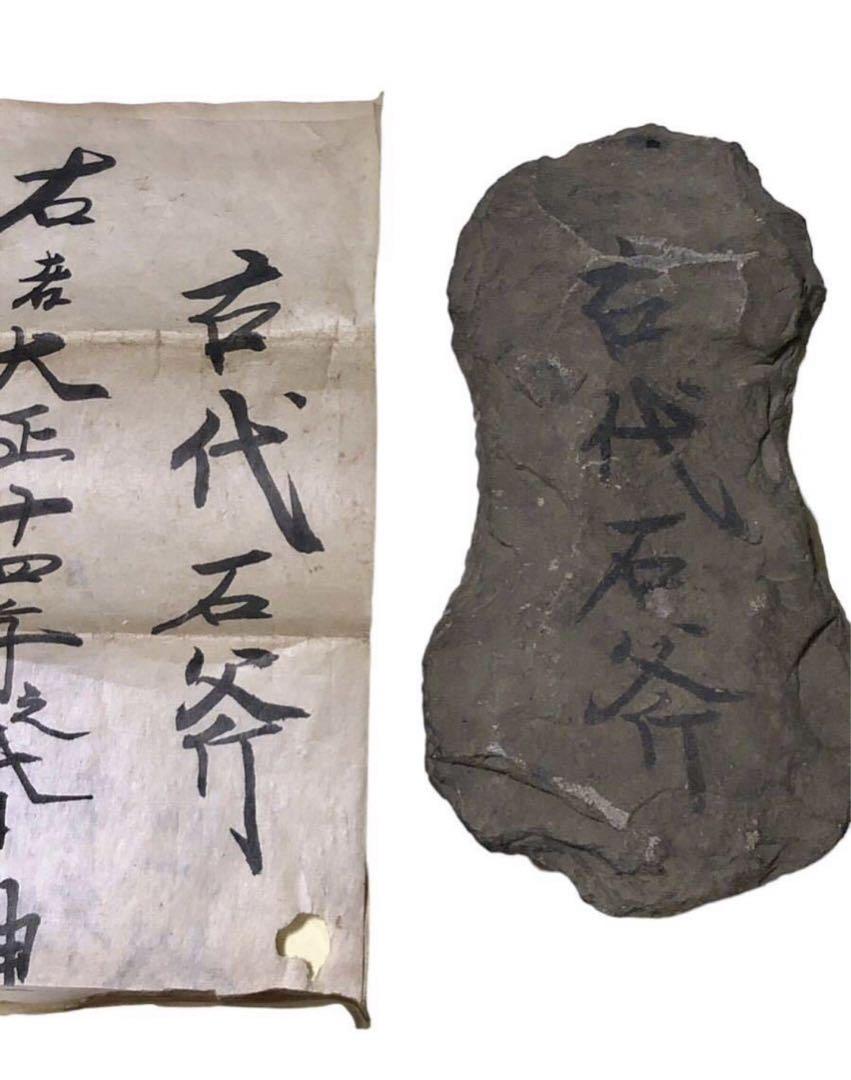 古代石斧
右者大正十四年之
古代石斧